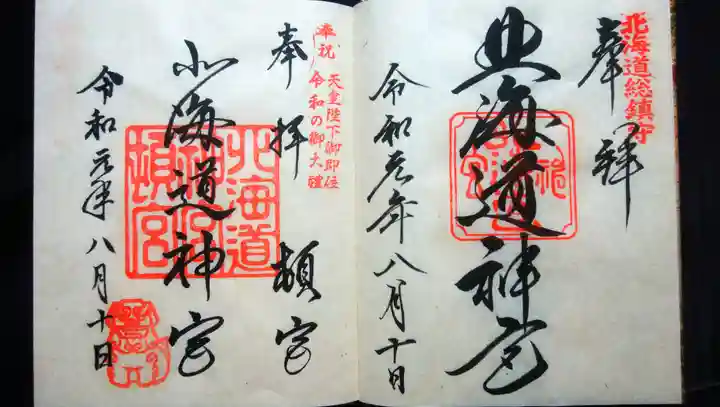 北海道総鎮守
奉拝
北海道神宮
令和元年八月十日
奉祝 天皇陛下御即位
令和の御大禮
奉拝 頓宮
北海道神宮
北海道
神宮
頓宮
令和元年八月十日